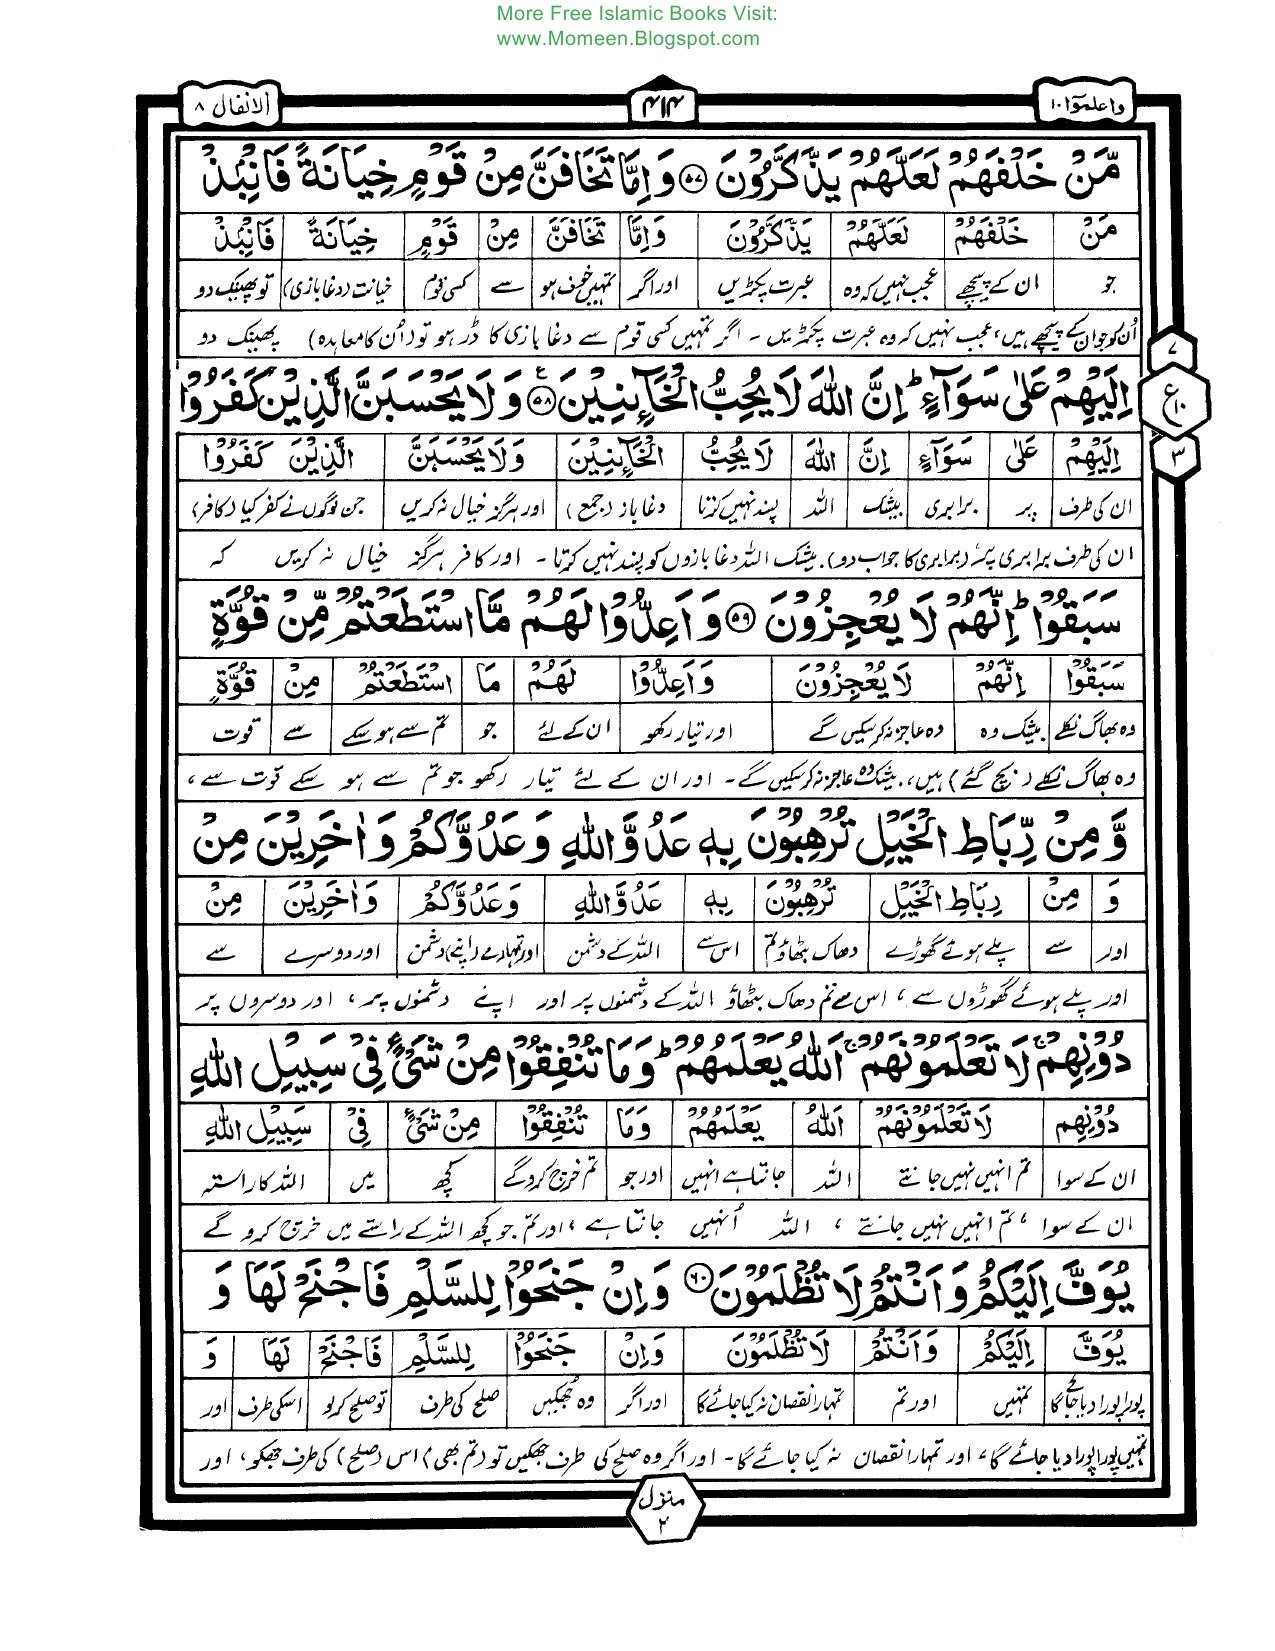 More Free Islamic Books Visit:
www.Momeen.Blogspot.com
واعلموا ۱۰
۴۱۴
الانفال ۸
مَّنْ خَلْفَهُمْ لَعَلَّهُمْ يَذَّكَّرُوْنَ ۵۷ وَاِمَّا تَخَافَنَّ مِنْ قَوْمٍ خِيَانَةً فَانْۢبِذْ
مَنْ خَلْفَهُمْ لَعَلَّهُمْ يَذَّكَّرُوْنَ وَاِمَّا تَخَافَنَّ مِنْ قَوْمٍ خِيَانَةً فَانْۢبِذْ
جو ان کے پیچھے عجب نہیں کہ وہ عبرت پکڑیں اور اگر تمہیں خوف ہو سے کسی قوم خیانت (دغا بازی) تو پھینک دو
اُن کو جو ان کے پیچھے ہیں، عجب نہیں کہ وہ عبرت پکڑیں ۔ اگر تمہیں کسی قوم سے دغا بازی کا ڈر ہو تو (اُن کا معاہدہ) پھینک دو
۷
ع ۱۰
۳
اِلَيْهِمْ عَلٰى سَوَآءٍ ؕ اِنَّ اللّٰهَ لَا يُحِبُّ الْخَآئِنِيْنَ ۵۸ ع وَلَا يَحْسَبَنَّ الَّذِيْنَ كَفَرُوْا
اِلَيْهِمْ عَلٰى سَوَآءٍ اِنَّ اللّٰهَ لَا يُحِبُّ الْخَآئِنِيْنَ وَلَا يَحْسَبَنَّ الَّذِيْنَ كَفَرُوْا
ان کی طرف پر برابری بیشک اللہ پسند نہیں کرتا دغا باز (جمع) اور ہرگز خیال نہ کریں جن لوگوں نے کفر کیا (کافر)
ان کی طرف برابری پر (برابری کا جواب دو)، بیشک اللہ دغا بازوں کو پسند نہیں کرتا ۔ اور کافر ہرگز خیال نہ کریں کہ
سَبَقُوْا ؕ اِنَّهُمْ لَا يُعْجِزُوْنَ ۵۹ وَاَعِدُّوْا لَهُمْ مَّا اسْتَطَعْتُمْ مِّنْ قُوَّةٍ
سَبَقُوْا اِنَّهُمْ لَا يُعْجِزُوْنَ وَاَعِدُّوْا لَهُمْ مَا اسْتَطَعْتُمْ مِنْ قُوَّةٍ
وہ بھاگ نکلے بیشک وہ وہ عاجز نہ کرسکیں گے اور تیار رکھو ان کے لئے جو تم سے ہوسکے سے قوت
وہ بھاگ نکلے (بچ گئے) ہیں، بیشک وہ عاجز نہ کرسکیں گے ۔ اور ان کے لئے تیار رکھو جو تم سے ہو سکے قوت سے،
وَّمِنْ رِّبَاطِ الْخَيْلِ تُرْهِبُوْنَ بِهٖ عَدُوَّ اللّٰهِ وَعَدُوَّكُمْ وَاٰخَرِيْنَ مِنْ
وَ مِنْ رِبَاطِ الْخَيْلِ تُرْهِبُوْنَ بِهٖ عَدُوَّ اللّٰهِ وَعَدُوَّكُمْ وَاٰخَرِيْنَ مِنْ
اور سے پلے ہوئے گھوڑے دھاک بٹھاؤ تم اس سے اللہ کے دشمن اور تمہارے (اپنے) دشمن اور دوسرے سے
اور پلے ہوئے گھوڑوں سے، اس سے تم دھاک بٹھاؤ اللہ کے دشمنوں پر اور اپنے دشمنوں پر، اور دوسروں پر
دُوْنِهِمْ ۚ لَا تَعْلَمُوْنَهُمْ ۚ اَللّٰهُ يَعْلَمُهُمْ ؕ وَمَا تُنْفِقُوْا مِنْ شَىْءٍ فِىْ سَبِيْلِ اللّٰهِ
دُوْنِهِمْ لَا تَعْلَمُوْنَهُمْ اَللّٰهُ يَعْلَمُهُمْ وَمَا تُنْفِقُوْا مِنْ شَىْءٍ فِىْ سَبِيْلِ اللّٰهِ
ان کے سوا تم انہیں نہیں جانتے اللہ جانتا ہے انہیں اور جو تم خرچ کروگے کچھ میں اللہ کا راستہ
ان کے سوا، تم انہیں نہیں جانتے، اللہ اُنہیں جانتا ہے، اور تم جو کچھ اللہ کے راستے میں خرچ کرو گے
يُوَفَّ اِلَيْكُمْ وَاَنْتُمْ لَا تُظْلَمُوْنَ ۶۰ وَاِنْ جَنَحُوْا لِلسَّلْمِ فَاجْنَحْ لَهَا وَ
يُوَفَّ اِلَيْكُمْ وَاَنْتُمْ لَا تُظْلَمُوْنَ وَاِنْ جَنَحُوْا لِلسَّلْمِ فَاجْنَحْ لَهَا وَ
پورا پورا دیا جائے گا تمہیں اور تم تمہارا نقصان نہ کیا جائے گا اور اگر وہ جھکیں صلح کی طرف تو صلح کرلو اسکی طرف اور
تمہیں پورا پورا دیا جائے گا، اور تمہارا نقصان نہ کیا جائے گا ۔ اور اگر وہ صلح کی طرف جھکیں تو (تم بھی) اس (صلح) کی طرف جھکو، اور
منزل
۲